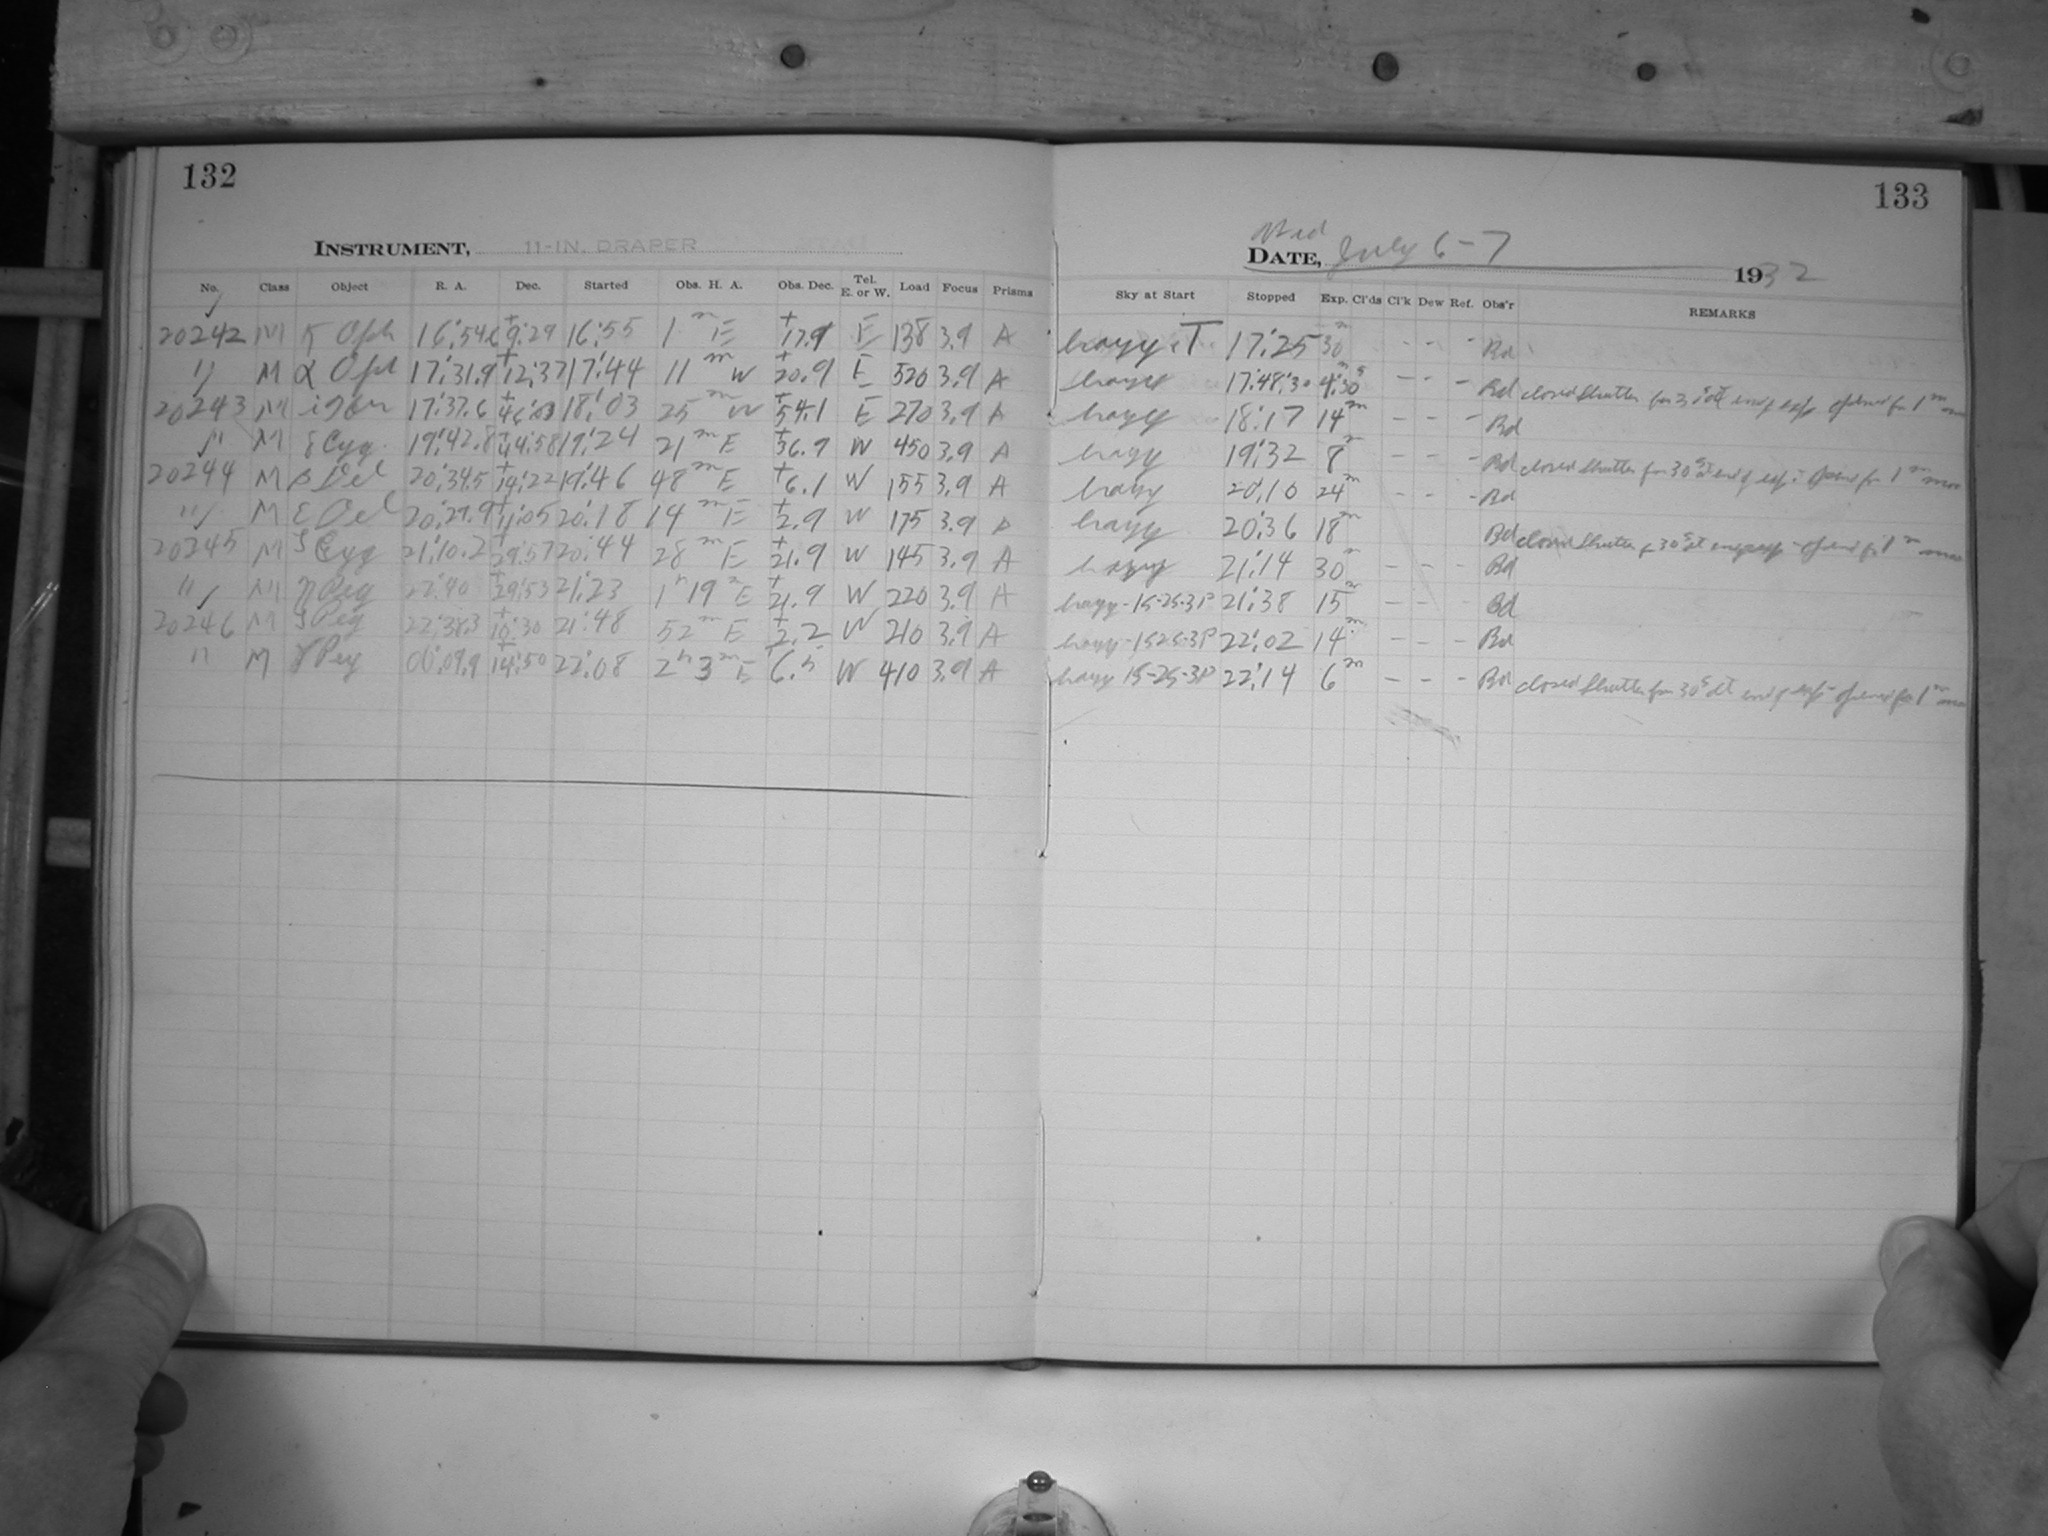 132
INSTRUMENT, 11-IN. DRAPER
No. Class Object R. A. Dec. Started Obs. H. A. Obs. Dec. Tel. E. or W. Load Focus Prisms
20242 M κ Oph 16:54.6 +9:29 16:55 1m E +17.9 E 138 3.9 A
" M α Oph 17:31.9 +12:37 17:44 11m W +20.9 E 520 3.9 A
20243 M ι 17:37.6 +46:03 18:03 25m W +54.1 E 270 3.9 A
" M δ Cyg. 19:42.8 +44:58 19:24 21m E +36.9 W 450 3.9 A
20244 M β Del 20:34.5 +14:22 19:46 48m E +6.1 W 155 3.9 A
" M ε Del 20:29.9 +11:05 20:18 14m E +2.9 W 175 3.9 A
20245 M ζ Cyg 21:10.2 +29:57 20:44 28m E +21.9 W 145 3.9 A
" M η Peg 22:40 +29:53 21:23 1h 19m E +21.9 W 220 3.9 A
20246 M ζ Peg 22:38.3 +10:30 21:48 52m E +2.2 W 210 3.9 A
" M γ Peg 00:09.9 +14:50 22:08 2h 3m E 6.5 W 410 3.9 A
133
Wed
DATE, July 6-7 1932
Sky at Start Stopped Exp. Cl'ds Cl'k Dew Ref. Obs'r REMARKS
hazy T 17:25 30m - - - Bd
hazy 17:48:30 4m:30s - - - Bd closed shutter for 30s at end of exp. opened for 1m more
hazy 18:17 14m - - - Bd
hazy 19:32 8m - - - Bd closed shutter for 30s at end of exp. opened for 1m more
hazy 20:10 24m - - - Bd
hazy 20:36 18m Bd closed shutter for 30s at end of exp - opened for 1m more
hazy 21:14 30m - - - Bd
hazy-1S-2S-3P 21:38 15m - - - Bd
hazy-1S-2S-3P 22:02 14m - - - Bd
hazy 1S-2S-3P 22:14 6m - - - Bd closed shutter for 30s at end of exp - opened for 1m more